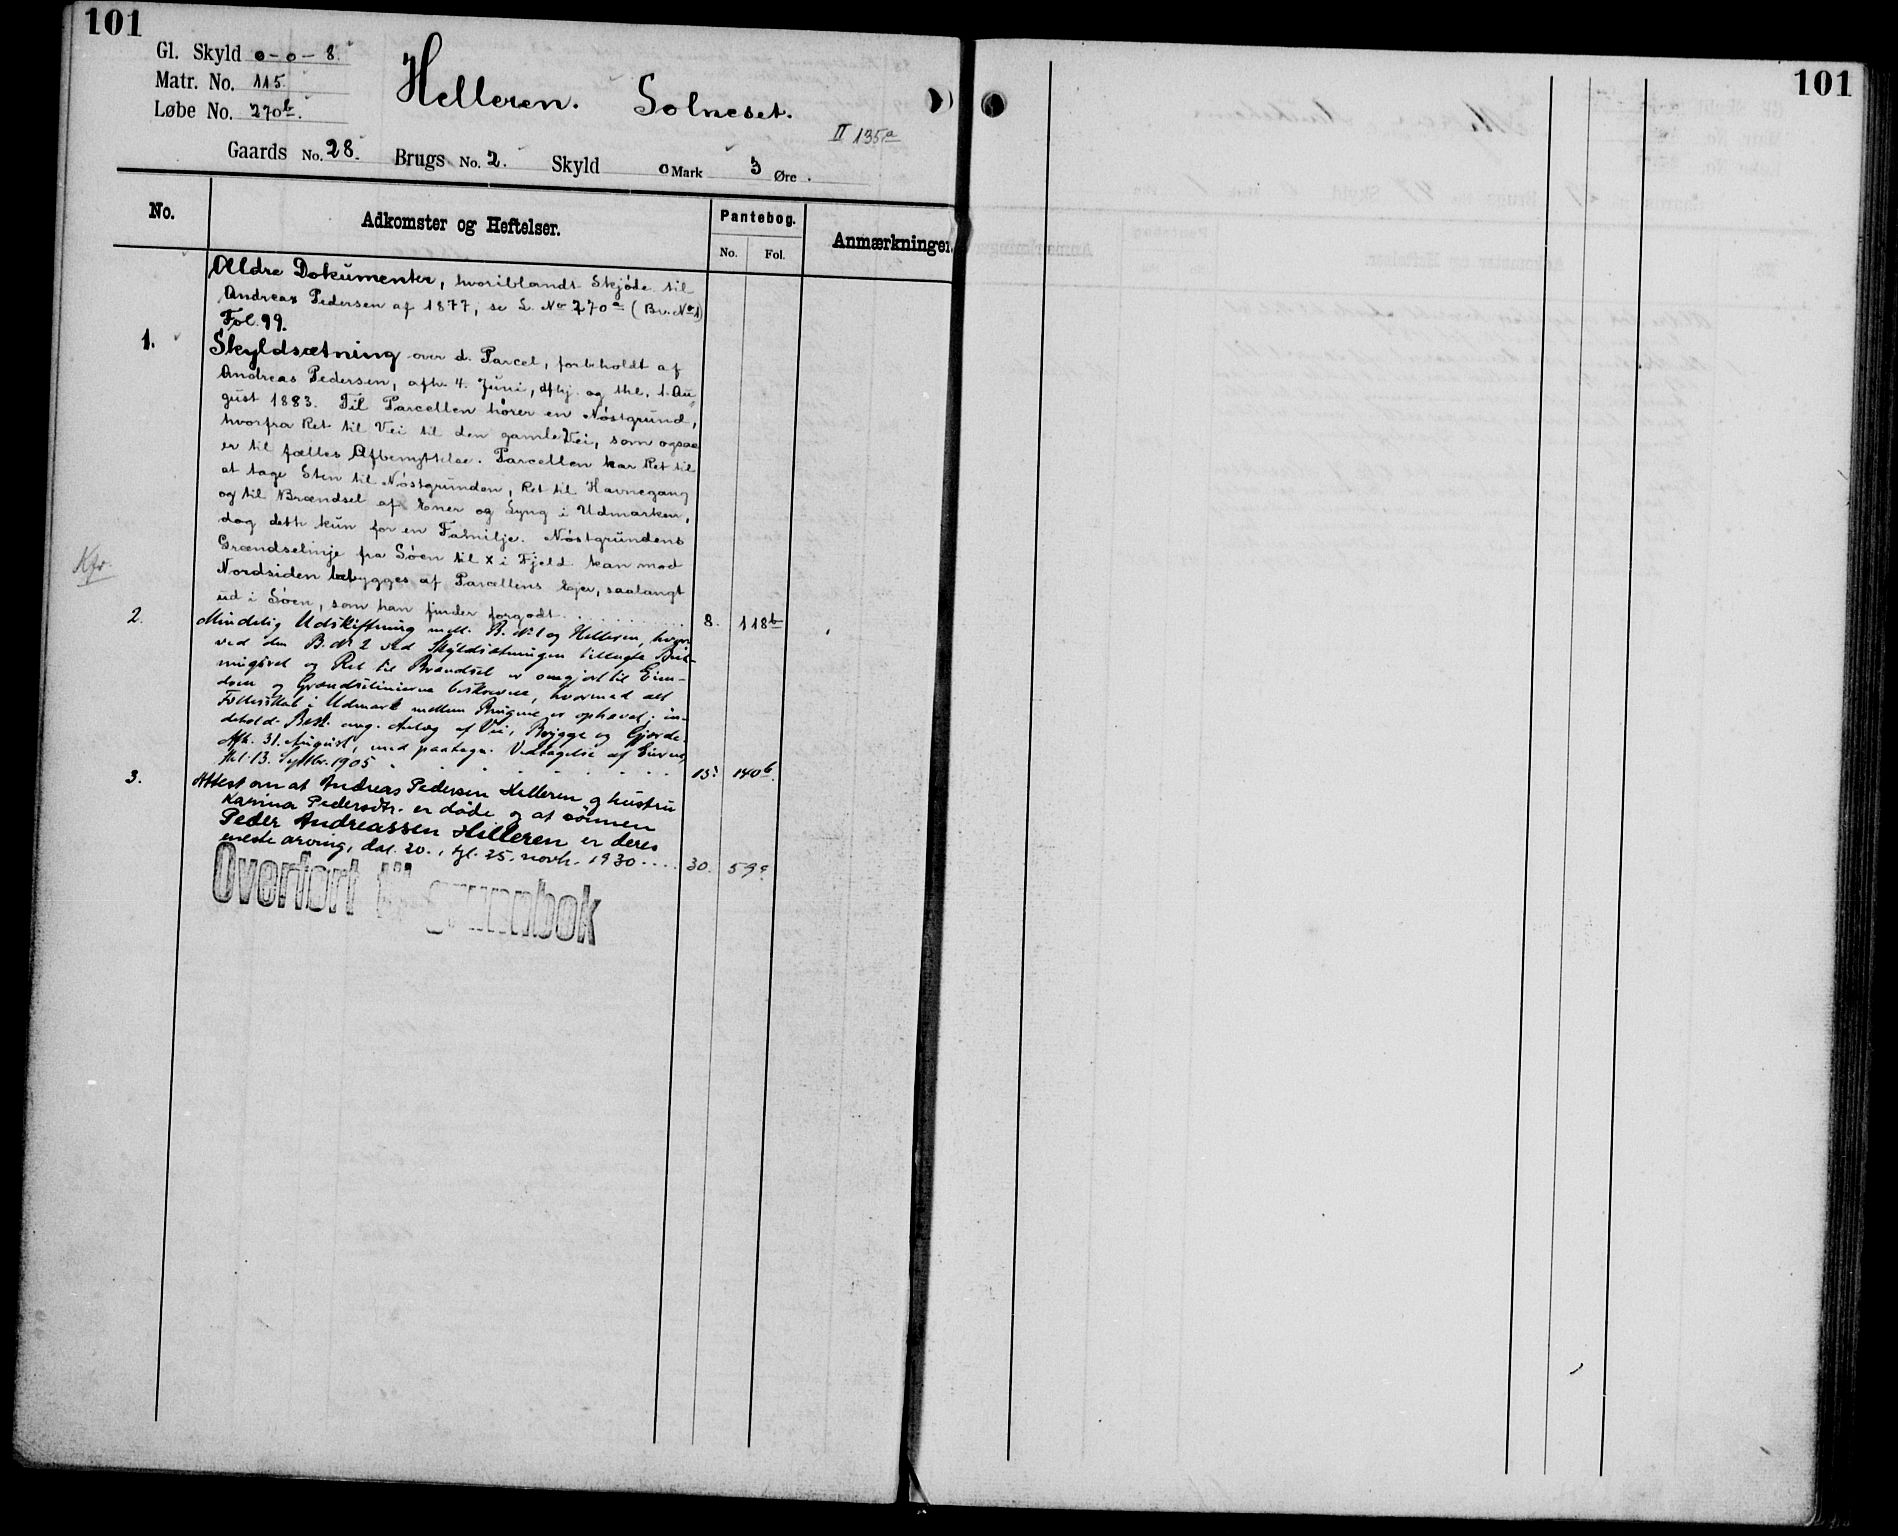 101
Gl. Skyld 0-0-8.
Matr. No. 115.
Løbe No. 270b.
Helleren. Solneset.
II 135a
Gaards No. 28. Brugs No. 2. Skyld 0 Mark 3 Øre.
No.
Adkomster og Heftelser.
Pantebog.
No. Fol.
Anmærkninger
Ældre Dokumenter, hvoriblandt Skjøde til
Andreas Pedersen af 1877, se L. No 270a (Br. No 1)
Fol. 99.
1. Skyldsætning over d. Parcel, forbeholdt af
Andreas Pedersen, afh. 4. Juni, afhj. og thl. 1. Au-
gust 1883. Til Parcellen hører en Nöstgrund,
hvorfra Ret til Vei til den gamle Vei, som ogsaa
er til fælles Afbenyttelse. Parcellen har Ret til
at tage Sten til Nöstgrunden, Ret til Havnegang
og til Brændsel af Ener og Lyng i Udmarken,
dog dette kun for en Familje. Nöstgrundens
Grændselinje fra Søen til x i Fjeld kan mod
Nordsiden bebygges af Parcellens Ejer, saalangt
ud i Søen, som han finder forgodt 8. 118b
Kfr.
2. Mindelig Udskiftning mell. B. No 1 og Helleren, hvor-
ved den B. No 2 ved Skyldsætningen tillagte Beit-
ningsret og Ret til Brændsel er omgjort til Eien-
dom og Grændselinierne beskrevne, hvormed alt
Fællesskab i Udmark mellem Brugene er ophævet; in-
dehold. Best. ang. Anlæg af Vei, Brygge og Gjerde.
Afh. 31. August, med paategn. Vedtagelse af Eierne,
thl. 13. Septbr. 1905 15. 140b.
3. Attest om at Andreas Pedersen Helleren og hustru
Karina Pedersdtr. er døde og at sönnen
Peder Andreassen Helleren er deres
eneste arving, dat. 20., tgl. 25. novb. 1930 .... 30. 59a
Overført til grunnbok
101